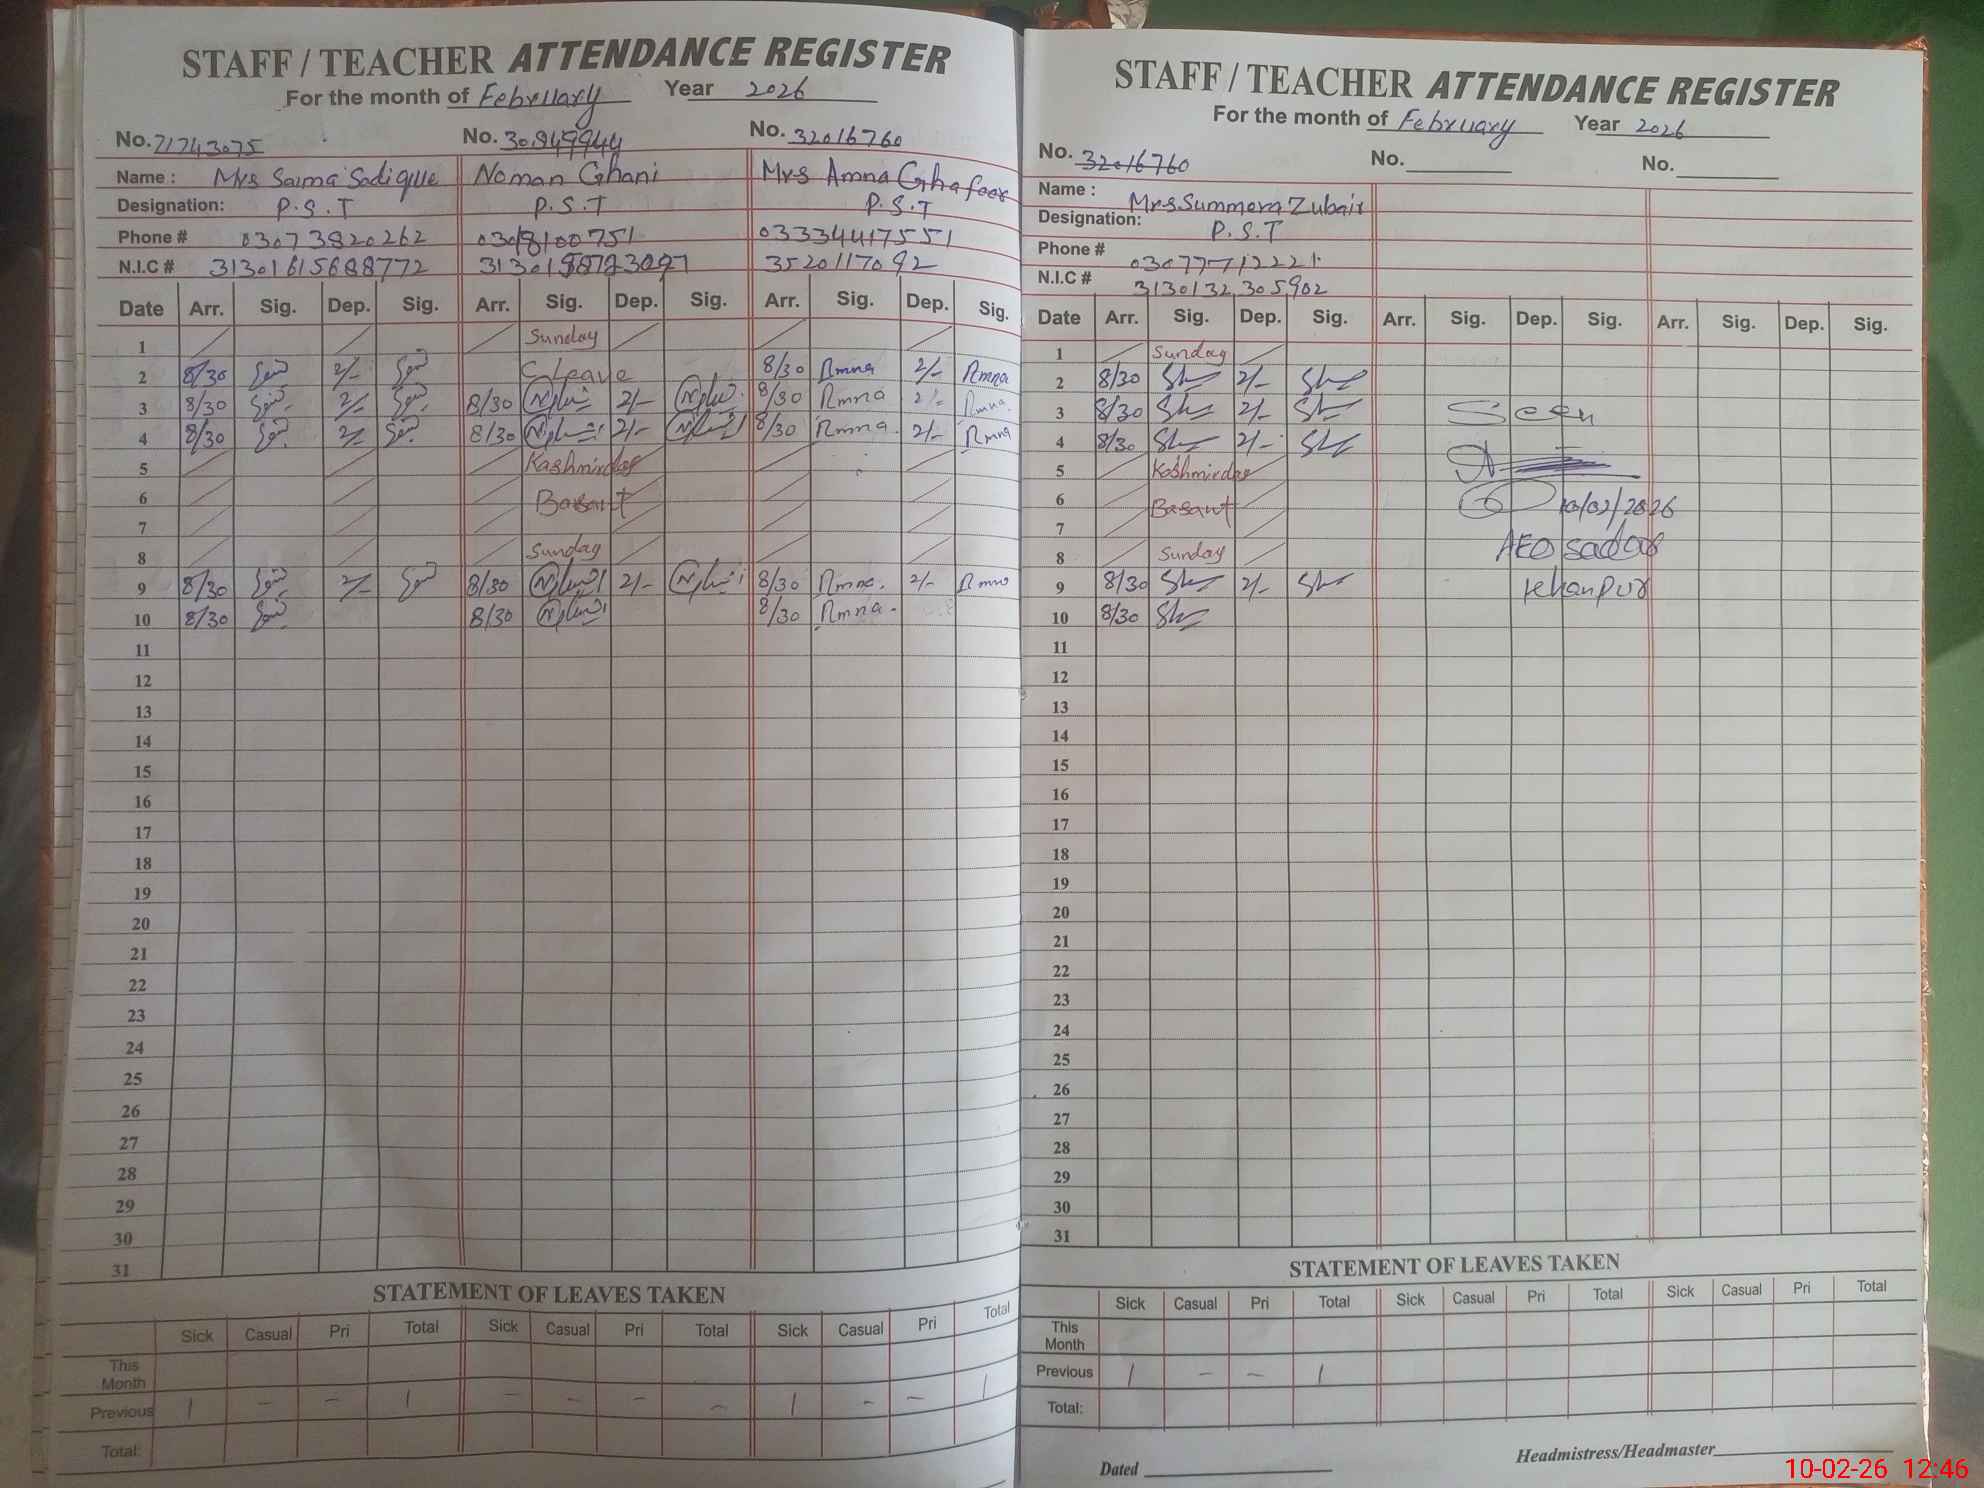 STAFF / TEACHER ATTENDANCE REGISTER
For the month of February Year 2026
No. 71743075 No. 30849944 No. 32016760
Name : Mrs Saima Sadique Noman Ghani Mrs Amna Ghafoor
Designation: P.S.T P.S.T P.S.T
Phone # 03073820262 03018100751 03334417551
N.I.C # 31301615688772 3520117092
Date Arr. Sig. Dep. Sig. Arr. Sig. Dep. Sig. Arr. Sig. Dep. Sig.
1 Sunday
2 8/30 2/- C Leave 8/30 Amna 2/- Amna
3 8/30 2/- 8/30 2/- 8/30 Amna 2/- Amna
4 8/30 2/- 8/30 2/- 8/30 Amna 2/- Amna
5 Kashmirday
6 Basant
7
8 Sunday
9 8/30 2/- 8/30 2/- 8/30 Amna 2/- Amna
10 8/30 8/30 8/30 Amna
11
12
13
14
15
16
17
18
19
20
21
22
23
24
25
26
27
28
29
30
31
STATEMENT OF LEAVES TAKEN
Sick Casual Pri Total Sick Casual Pri Total Sick Casual Pri Total
This Month
Previous 1 - - 1 - - - - 1 - - 1
Total:
STAFF / TEACHER ATTENDANCE REGISTER
For the month of February Year 2026
No. 32016760 No. No.
Name : Mrs Summera Zubair
Designation: P.S.T
Phone # 03077712221
N.I.C # 3130132305902
Date Arr. Sig. Dep. Sig. Arr. Sig. Dep. Sig. Arr. Sig. Dep. Sig.
1 Sunday
2 8/30 2/-
3 8/30 2/- Seen
4 8/30 2/-
5 Kashmirday
6 Basant 10/02/2026
7
8 Sunday AEO Sadar
9 8/30 2/- Khanpur
10 8/30
11
12
13
14
15
16
17
18
19
20
21
22
23
24
25
26
27
28
29
30
31
STATEMENT OF LEAVES TAKEN
Sick Casual Pri Total Sick Casual Pri Total Sick Casual Pri Total
This Month
Previous 1 - - 1
Total:
Dated Headmistress/Headmaster
10-02-26 12:46